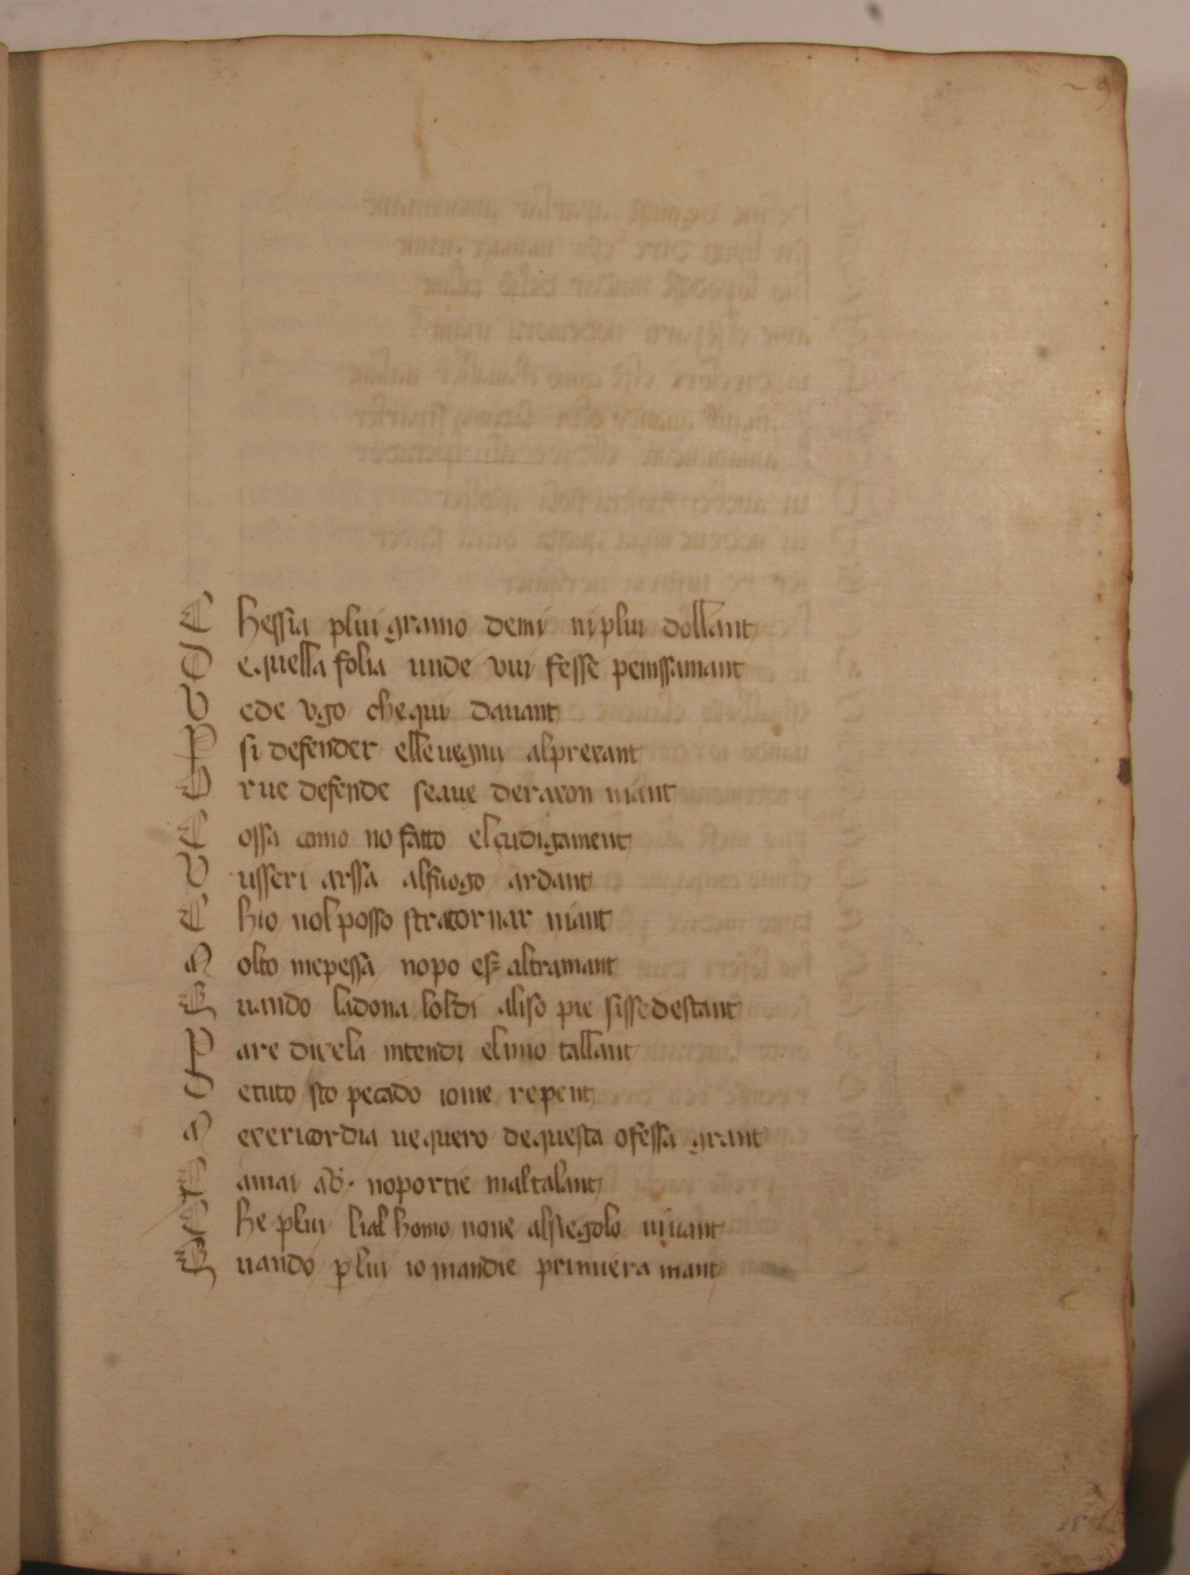 C hessia plui gramo demi ni plui dollant
D equella folia unde vui fesse penssamant
V ede vgo chequi dauant
P si defender elle uegnu alprexant
D rue defende seaue deraxon niant
C ossa como no fatto elçudigament
V usseri arssa alfuogo ardant
C hio nolposso stratornar niant
M olto mepessa nopo esẜ altramant
Q uando ladona loldi aliso pie sissedestant
P are dixela intendi elmio tallant
D etuto sto pecado iome repent
M exericordia uequero dequesta ofessa grant
E amai noportie maltalant
C he plui lial homo none alsiegolo uiuant
Q uando plui io mandie primiera mant